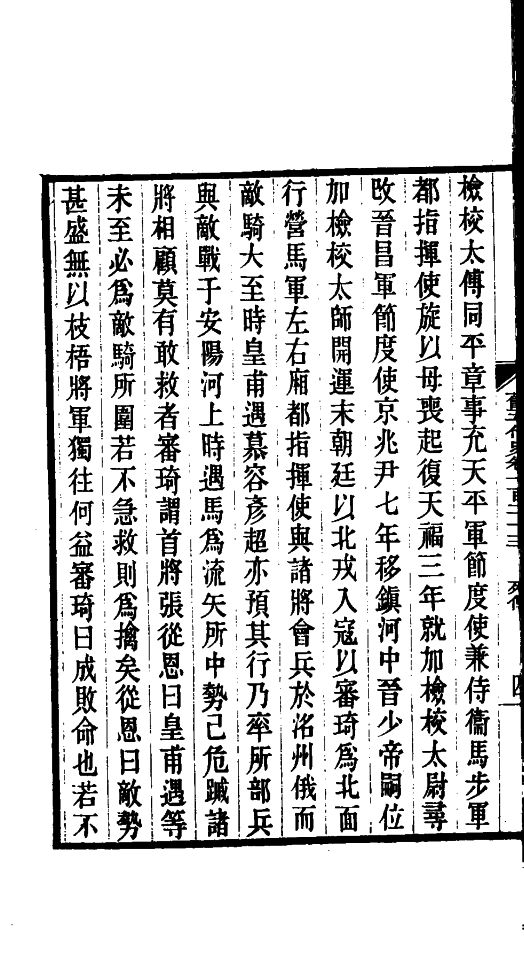 檢校太傅同平章事充天平軍節度使兼侍衞馬步軍
都指揮使旋以母喪起復天福三年就加檢校太尉尋
改晉昌軍節度使京兆尹七年移鎭河中晉少帝嗣位
加檢校太師開運末朝廷以北戎入寇以審琦爲北面
行營馬軍左右廂都指揮使與諸將會兵於洺州俄而
敵騎大至時皇甫遇慕容彥超亦預其行乃率所部兵
與敵戰于安陽河上時遇馬爲流矢所中勢已危蹙諸
將相顧莫有敢救者審琦謂首將張從恩曰皇甫遇等
未至必爲敵騎所圍若不急救則爲擒矣從恩曰敵勢
甚盛無以枝梧將軍獨往何益審琦曰成敗命也若不